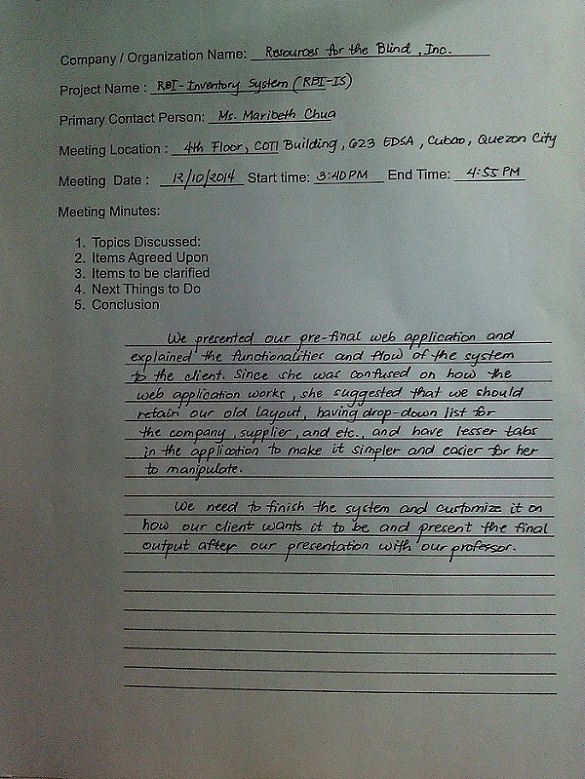 Company / Organization Name: Resources for the Blind, Inc.
Project Name: RBI-Inventory System (RBI-IS)
Primary Contact Person: Ms. Maribeth Chua
Meeting Location: 4th Floor, COTI Building, 623 EDSA, Cubao, Quezon City
Meeting Date: 12/10/2014 Start time: 3:40 PM End Time: 4:55 PM
Meeting Minutes:
1. Topics Discussed:
2. Items Agreed Upon
3. Items to be clarified
4. Next Things to Do
5. Conclusion
We presented our pre-final web application and
explained the functionalities and flow of the system
to the client. Since she was confused on how the
web application works, she suggested that we should
retain our old layout, having drop-down list for
the company, supplier, and etc., and have lesser tabs
in the application to make it simpler and easier for her
to manipulate.
We need to finish the system and customize it on
how our client wants it to be and present the final
output after our presentation with our professor.